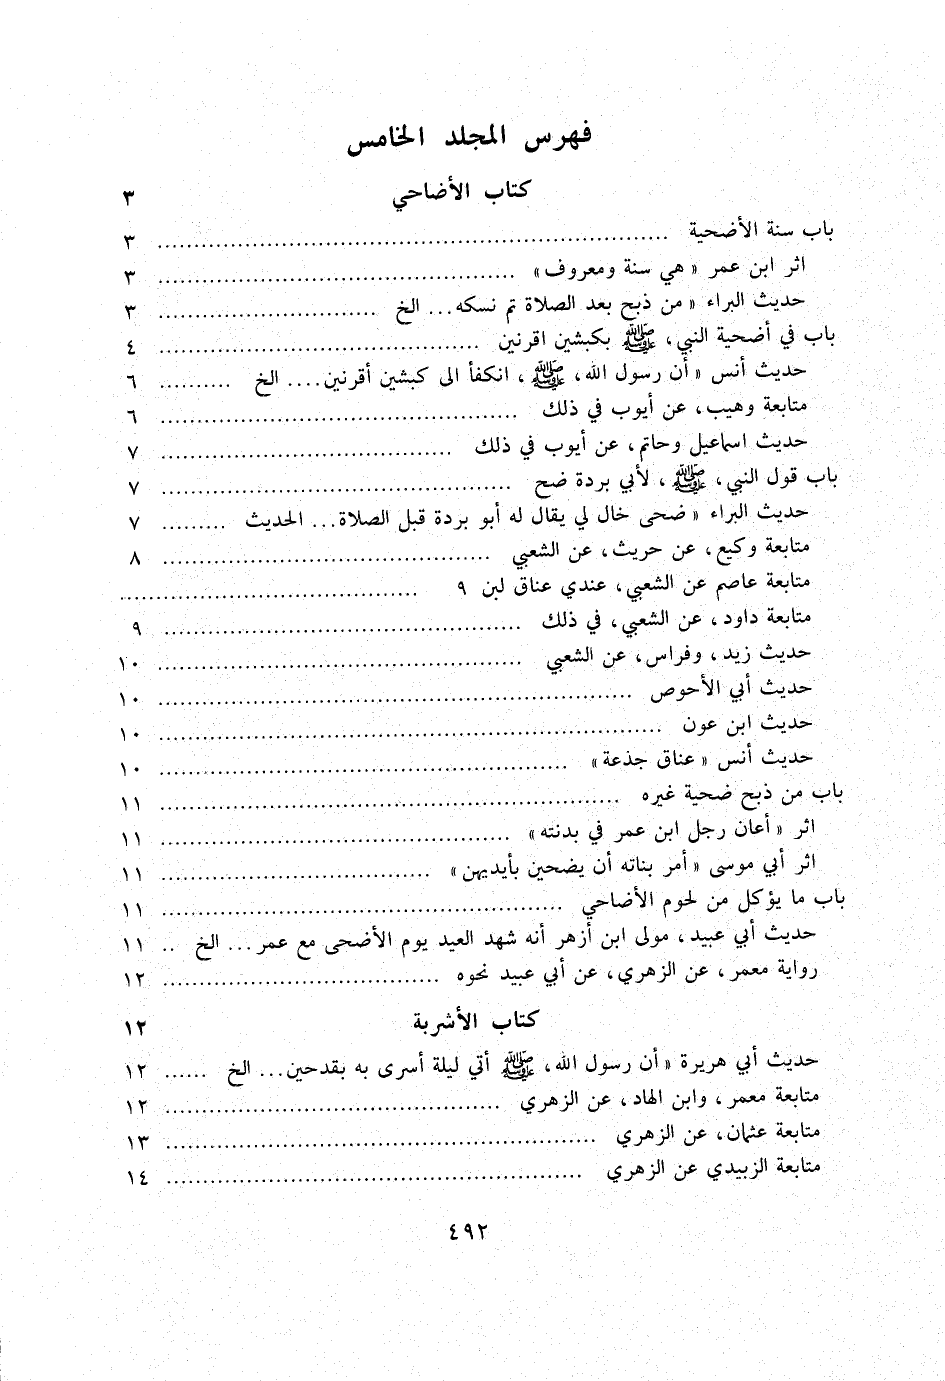 فهرس المجلد الخامس
كتاب الأضاحي ٣
باب سنة الأضحية ........ ٣
اثر ابن عمر « هي سنة ومعروف» ........ ٣
حديث البراء « من ذبح بعد الصلاة تم نسكه... الخ ........ ٣
باب في أضحية النبي، ﷺ بكبشين اقرنين ........ ٤
حديث أنس « أن رسول الله، ﷺ، انكفأ الى كبشين أقرنين.... الخ ........ ٦
متابعة وهيب، عن أيوب في ذلك ........ ٦
حديث اسماعيل وحاتم، عن أيوب في ذلك ........ ٧
باب قول النبي، ﷺ، لأبي بردة ضح ........ ٧
حديث البراء « ضحى خال لي يقال له أبو بردة قبل الصلاة... الحديث ........ ٧
متابعة وكيع، عن حريث، عن الشعبي ........ ٨
متابعة عاصم عن الشعبي، عندي عناق لبن ٩ ........
متابعة داود، عن الشعبي، في ذلك ........ ٩
حديث زيد، وفراس، عن الشعبي ........ ١٠
حديث أبي الأحوص ........ ١٠
حديث ابن عون ........ ١٠
حديث أنس « عناق جذعة» ........ ١٠
باب من ذبح ضحية غيره ........ ١١
اثر « أعان رجل ابن عمر في بدنته» ........ ١١
اثر أبي موسى « أمر بناته أن يضحين بأيديهن» ........ ١١
باب ما يؤكل من لحوم الأضاحي ........ ١١
حديث أبي عبيد، مولى ابن أزهر أنه شهد العيد يوم الأضحى مع عمر... الخ .. ١١
رواية معمر، عن الزهري، عن أبي عبيد نحوه ........ ١٢
كتاب الأشربة ١٢
حديث أبي هريرة « أن رسول الله، ﷺ أتي ليلة أسرى به بقدحين... الخ ...... ١٢
متابعة معمر، وابن الهاد، عن الزهري ........ ١٢
متابعة عثمان، عن الزهري ........ ١٣
متابعة الزبيدي عن الزهري ........ ١٤
٤٩٢